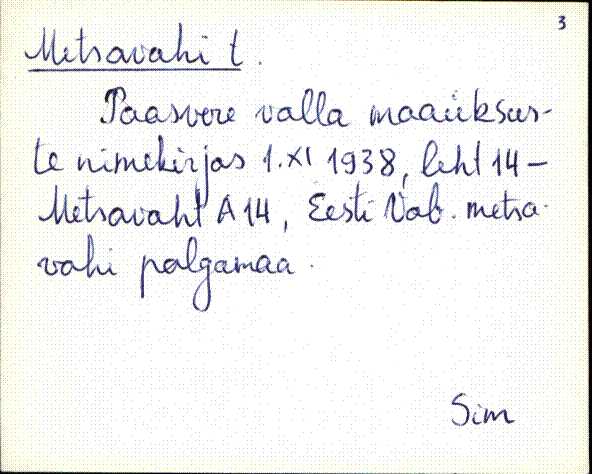 3
Metsavahi t.
Paasvere valla maaüksus-
te nimekirjas 1.XI 1938, leht 14 –
Metsavaht A 14, Eesti Vab. metsa-
vahi palgamaa.
Sim